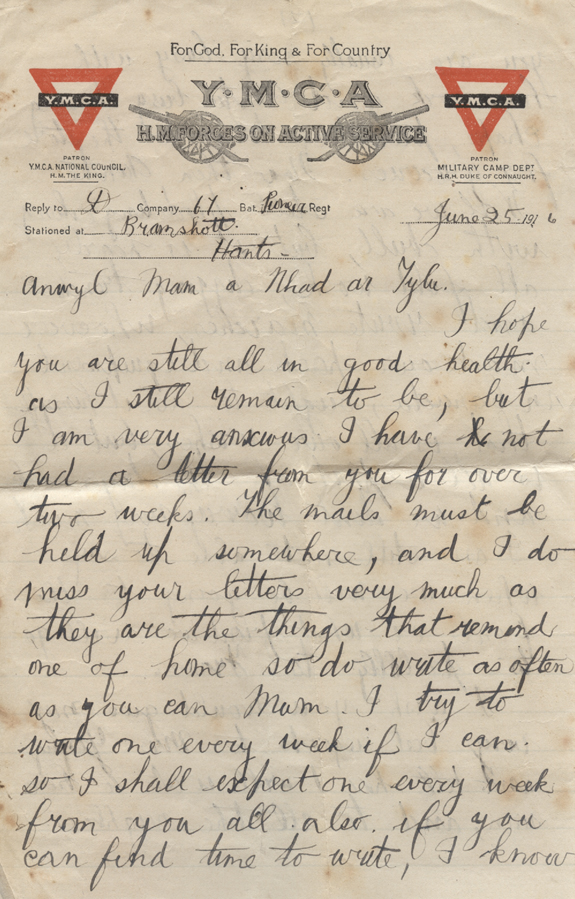 For God, For King & For Country
Y.M.C.A
H.M. FORCES ON ACTIVE SERVICE
Y.M.C.A.
Y.M.C.A.
PATRON
Y.M.C.A. NATIONAL COUNCIL.
H.M. THE KING.
PATRON
MILITARY CAMP DEPT
H.R.H. DUKE OF CONNAUGHT.
Reply to D Company 67 Bat. Pioneer Regt
June 25 1916
Stationed at Bramshott
Hants-
Anwyl Mam a Nhad ar Tylu.
I hope
you are still all in good health
as I still remain to be, but
I am very anxious I have not
had a letter from you for over
two weeks. The mails must be
held up somewhere, and I do
miss your letters very much as
they are the things that remind
one of home so do write as often
as you can Mum. I try to
write one every week if I can.
so I shall expect one every week
from you all also. if you
can find time to write, I know